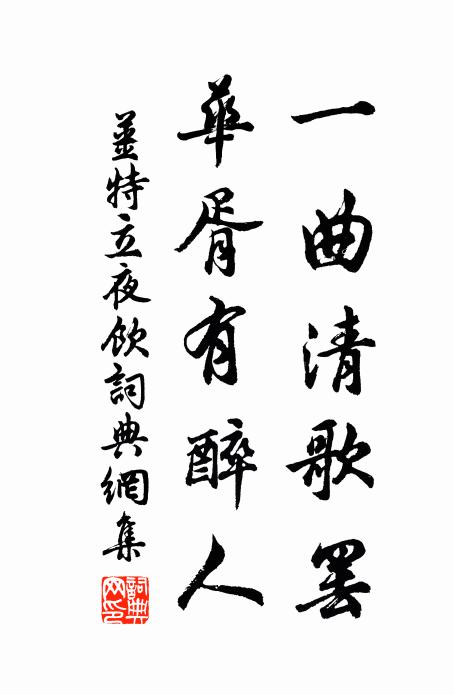 一曲清歌罢
華胥有醉人
薑特立夜飲詞典網集
詞典網印